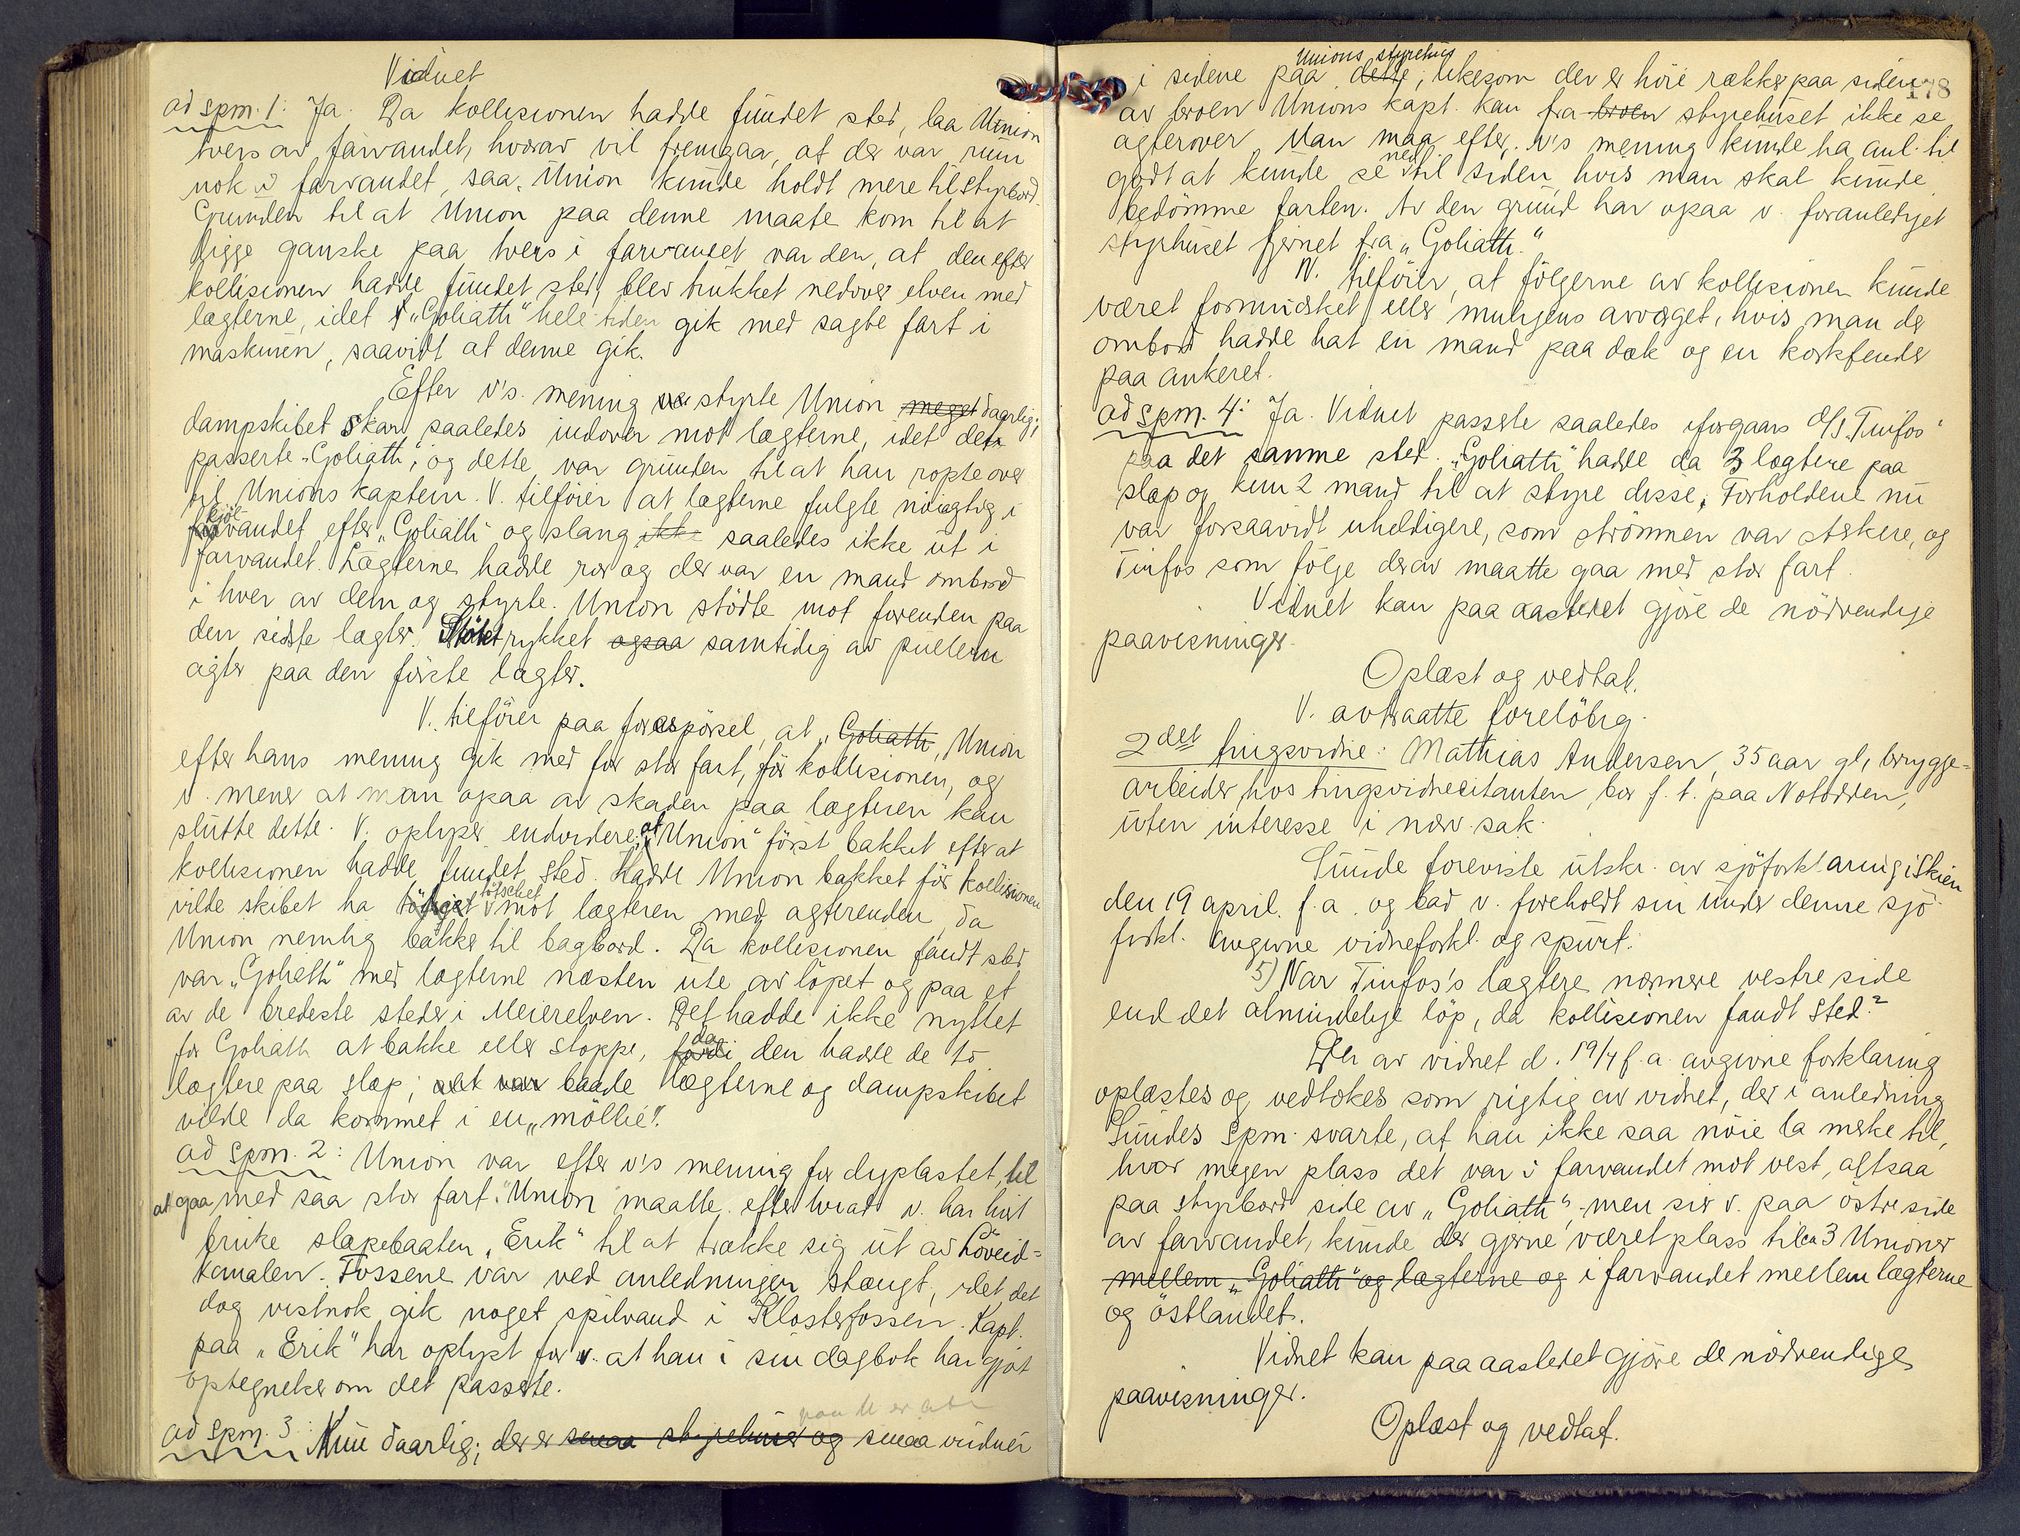 Vidnet
ad spm. 1: Ja. Da kollisionen hadde fundet sted, laa Union
tvers av farvandet, hvorav vil fremgaa, at der var rum
nok i farvandet, saa Union kunde holdt mere til styrbord.
Grunden til at Union paa denne maate kom til at
ligge ganske paa tvers i farvandet var den, at den efter
kollisionen hadde fundet sted, blev trukket nedover elven med
lægterne, idet "Goliath" hele tiden gik med sagte fart i
maskinen, saavidt at denne gik.
Efter v's. mening styrte Union meget daarlig;
dampskibet skar saaledes indover mot lægterne, idet den
passerte "Goliath", og dette var grunden til at han ropte over
til Unions kaptein. V. tilföier at lægterne fulgte nöiagtig i
kjölvandet efter "Goliath" og slang ikke saaledes ikke ut i
farvandet. Lægterne hadde ror og der var en mand ombord
i hver av dem og styrte. Union stödte mot forenden paa
den sidste lægter. Stötet rykket ogsaa samtidig av pullern
agter paa den förste lægter.
V. tilförer paa forespörsel, at "Goliath", Union
efter hans mening gik med for stor fart, för kollisionen, og
v. mener at man ogsaa av skaden paa lægteren kan
slutte dette. V. oplyser endvidere, at "Union" först bakket efter at
kollisionen hadde fundet sted. Hadde Union bakket för kollisionen
vilde skibet ha tötschet mot lægteren med agterenden, da
Union nemlig bakker til bagbord. Da kollisionen fandt sted
var "Goliath" med lægterne næsten ute av löpet og paa et
av de bredeste steder i Meierelven. Det hadde ikke nyttet
for Goliath at bakke eller stoppe, fordi da den hadde de to
lægtere paa slæp; det var baade lægterne og dampskibet
vilde da kommet i en "möllie".
ad spm. 2: Union var efter v's mening for dyplastet, til
at gaa med saa stor fart. "Union" maatte efter hvad v. har hört
bruke slæpebaaten "Erik" til at trække sig ut av Löveid-
kanalen. Fossene var ved anledningen stængt, idet det
dog vistnok gik noget spilvand i Klosterfossen. Kapt.
paa "Erik" har oplyst for v. at han i sin dagbok har gjort
optegnelser om det passerte.
ad spm. 3: Kun daarlig; der er smaa styrehuser og smaa vinduer
178
i sidene paa dette Unions styrehus, likesom der er höie rækker paa siden
av broen Unions kapt. kan fra broen styrehuset ikke se
agterover. Man maa efter v's mening kunde ha anl. til
godt at kunde se ned til siden, hvis man skal kunde
bedömme farten. Av den grund har ogsaa v. foranlediget
styrhuset fjernet fra "Goliath."
V. tilföier, at fölgerne av kollisionen kunde
været formindsket eller muligens avværget, hvis man der
ombord hadde hat en mand paa dæk og en korkfender
paa ankeret.
ad spm. 4: Ja. Vidnet passerte saaledes iforgaars D/S. "Tinfos"
paa det samme sted. "Goliath" hadde da 3 lægtere paa
slæp og kun 2 mand til at styre disse. Forholdene nu
var forsaavidt uheldigere, som strömmen var sterkere, og
Tinfos som fölge derav maatte gaa med stor fart.
Vidnet kan paa aastedet gjöre de nödvendige
paavisninger.
Oplæst og vedtat.
V. avtraatte forelöbig.
2det tingsvidne: Mathias Andersen, 35 aar gl, brygge-
arbeider hos tingsvidnecitanten, bor f. t. paa Notodden,
uten interesse i nærv. sak.
Sunde foreviste utskr. av sjöforklaring i Skien
den 19 april f. a. og bad v. foreholdt sin under denne sjö-
forkl. avgivne vidneforkl. og spurt:
5) Var Tinfos's lægtere nærmere vestre side
end det almindelige löp, da kollisionen fandt sted?
Den av vidnet d. 19/4 f. a. avgivne forklaring
oplæstes og vedtokes som rigtig av vidnet, der i anledning
Sundes spm. svarte, at han ikke saa nöie la merke til,
hvor megen plass det var i farvandet mot vest, altsaa
paa styrbord side av "Goliath", men sier v. paa östre side
av farvandet, kunde der gjerne været plass til ca 3 Unioner
mellem "Goliath" og lægterne og i farvandet mellem lægterne
og östlandet.
Vidnet kan paa aastedet gjöre de nödvendige
paavisninger.
Oplæst og vedtat.